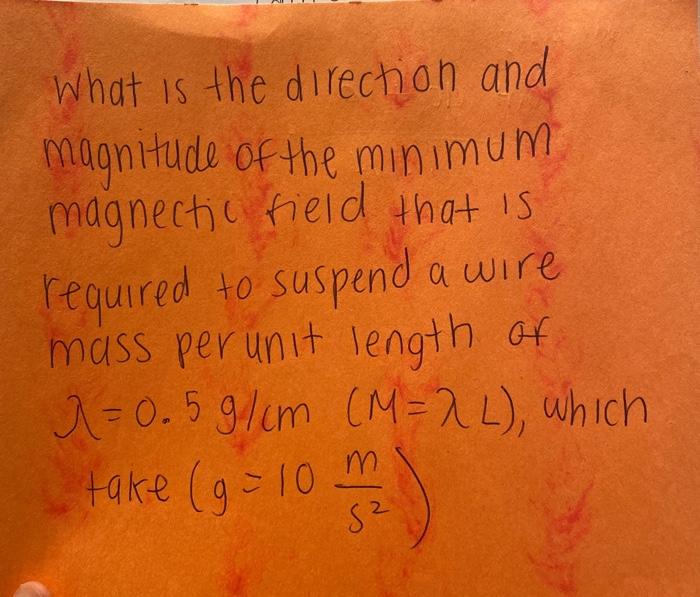 What is the direction and
magnitude of the minimum
magnectic field that is
required to suspend a wire
mass per unit length of
λ = 0.5 g/cm (M = λ L), which
take (g = 10 m/s²)